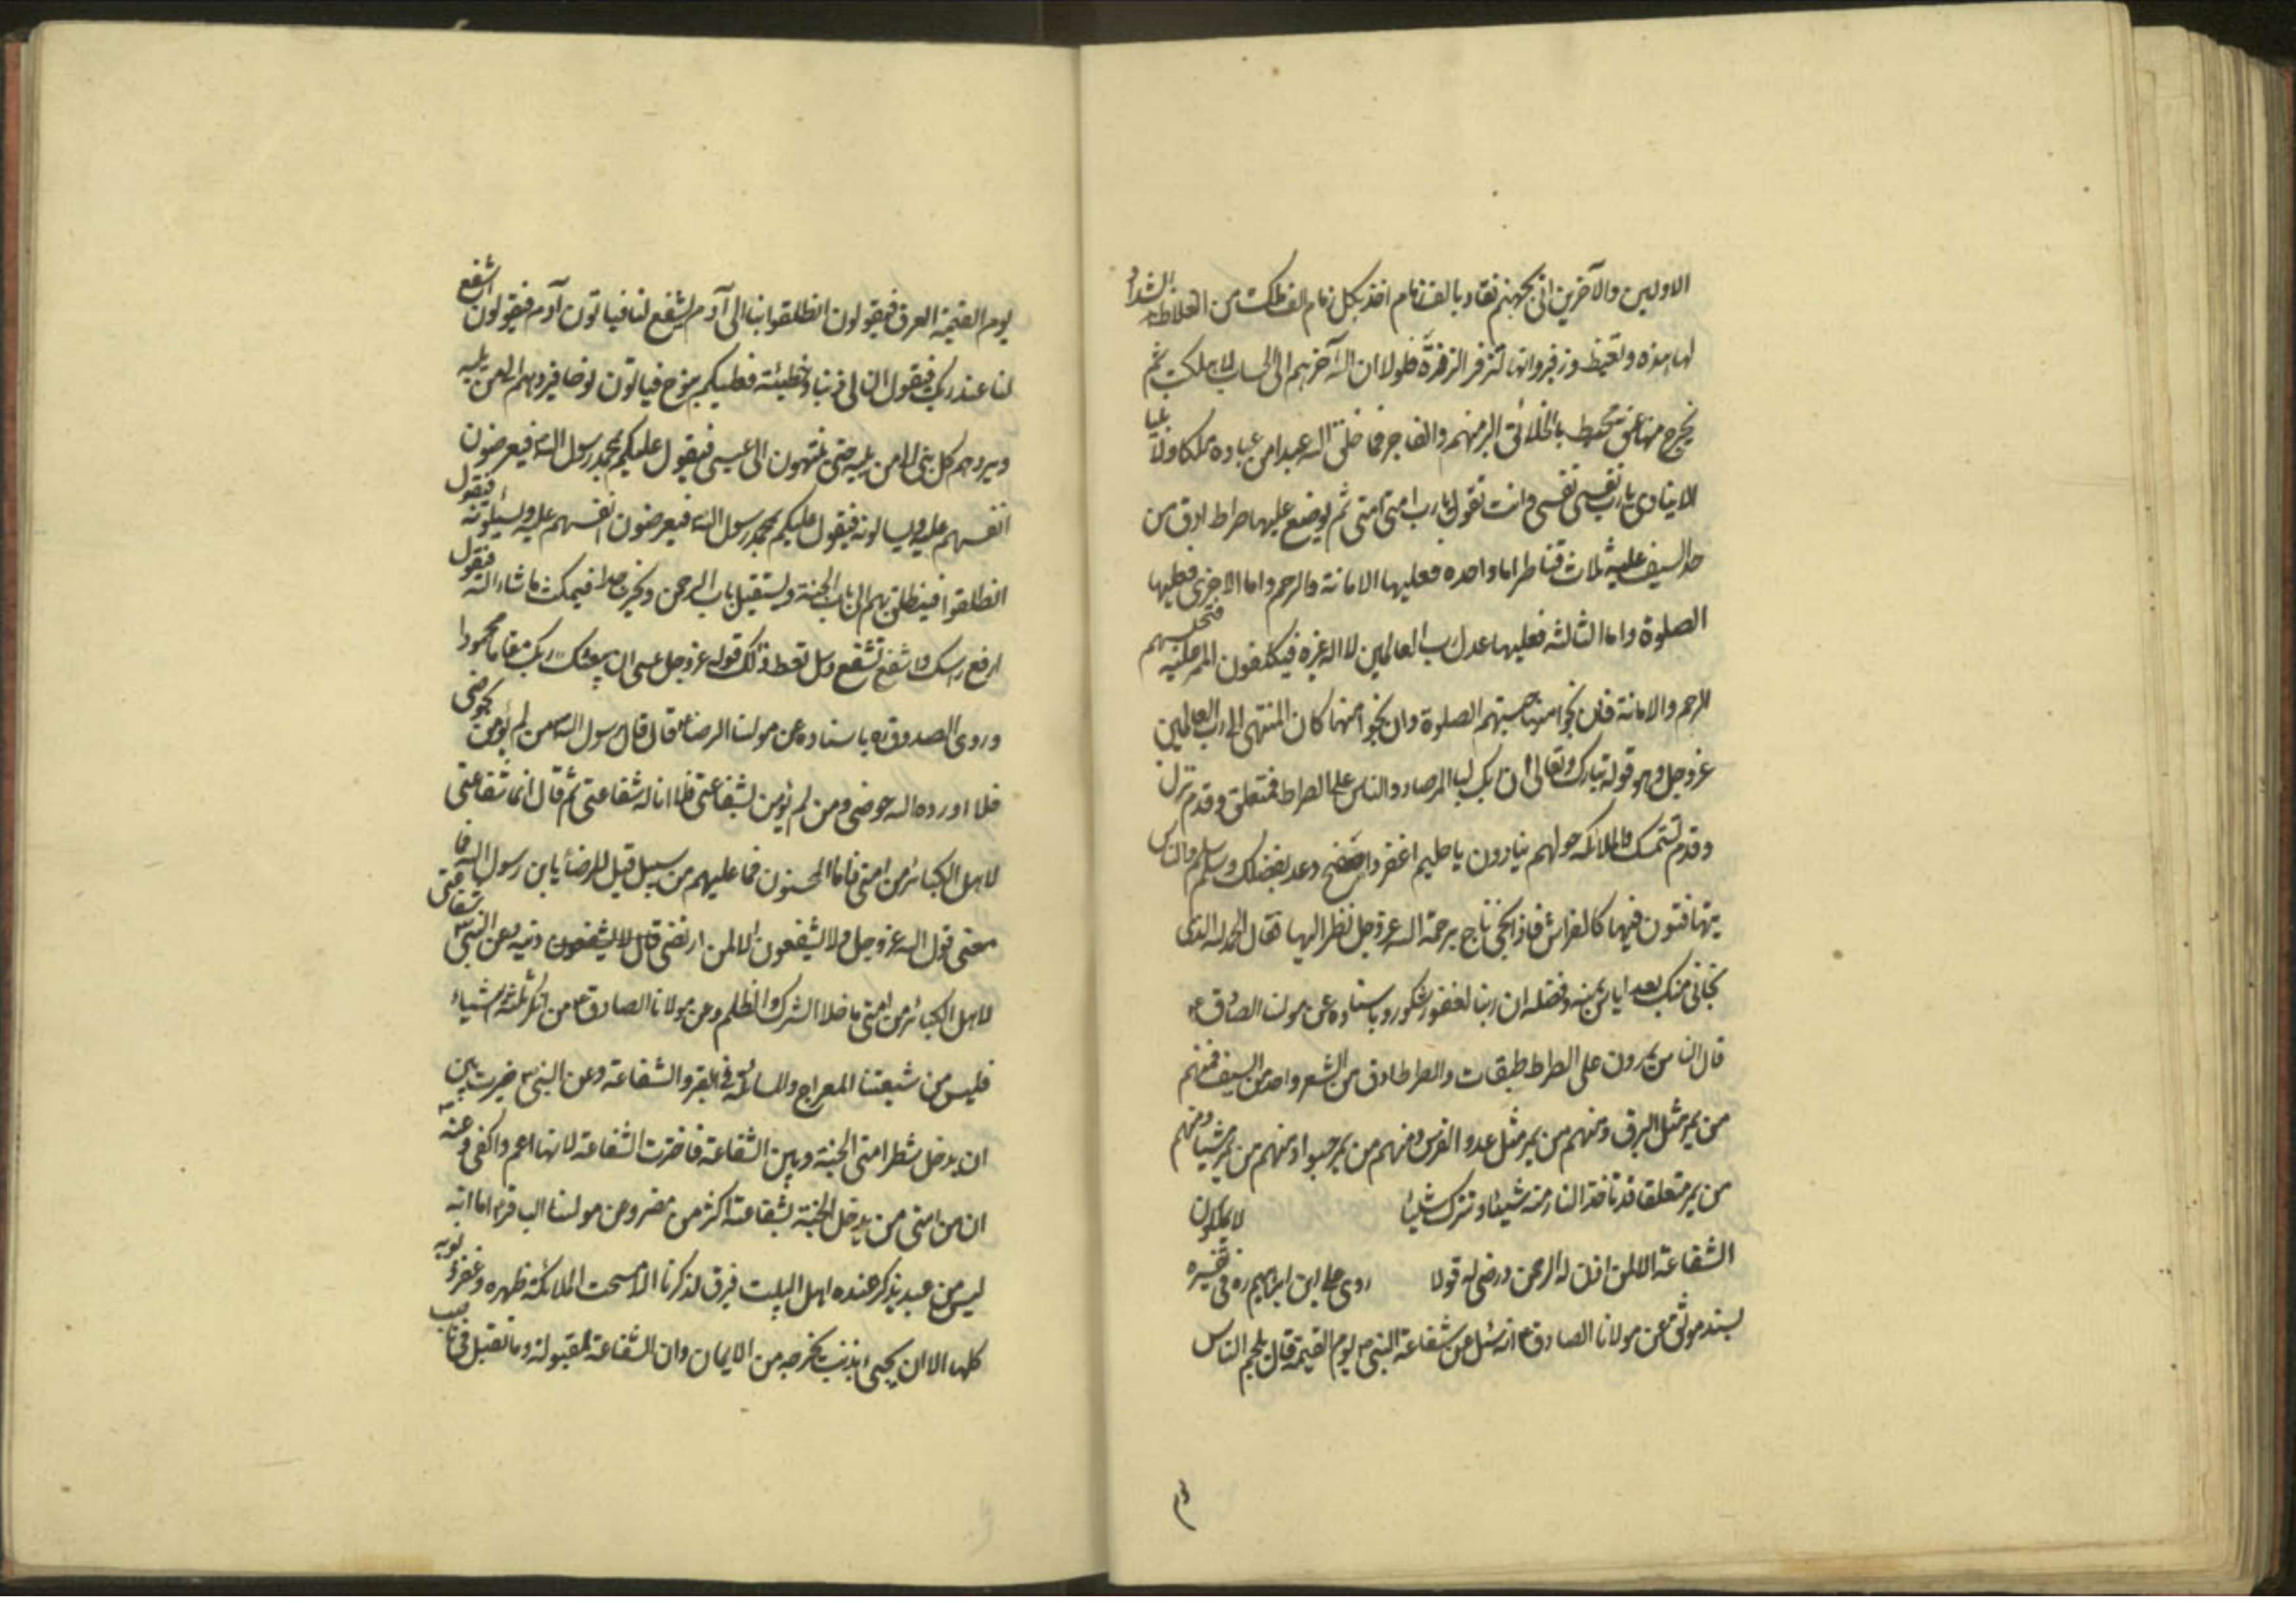 الاولين والآخرين اتى بجهنم تقاد بالف زمام اخذ بكل زمام الف ملك من الغلاظ الشداد
لها هدة وتغيظ وزفير وانها لتزفر الزفرة فلولا ان الله آخرهم الى الحساب لاهلكت ثم
يخرج منها عنق يحيط بالخلائق البر منهم والفاجر فما خلق الله عبدا من عباده ملكا ولا نبيا
الا ينادى يا رب نفسى نفسى وانت تقول يا رب امتى امتى ثم يوضع عليها صراط ادق من
حد السيف عليه ثلاث قناطر اما واحده فعليها الامانة والرحم واما الاخرى فعليها
الصلوة واما الثالثه فعليها عدل رب العالمين لا اله غيره فيكلفون الممر عليه فتحبسهم
الرحم والامانة فان نجوا منها حبستهم الصلوة وان نجوا منها كان المنتهى الى رب العالمين
عز وجل وهو قوله تبارك وتعالى ان ربك لبالمرصاد والناس على الصراط فمتعلق وقدم تزل
وقدم تستمسك والملائكه حولهم ينادون يا حليم اغفر واصفح وعد بفضلك وسلم والناس
يتهافتون فيها كالفراش فاذا نجى ناج برحمة الله عز وجل نظر اليها فقال الحمد لله الذى
نجانى منك بعد اياس بمنه وفضله ان ربنا لغفور شكور وباسناده عن مولنا الصادق ع
قال الناس يمرون على الصراط طبقات والصراط ادق من الشعر واحد من السيف فمنهم
من يمر مثل البرق ومنهم من يمر مثل عدو الفرس ومنهم من يمر حبوا ومنهم من يمر مشيا ومنهم
من يمر متعلقا قد تاخذ النار منه شيئا وتترك شيئا لا يملكون
الشفاعة الا لمن اذن له الرحمن ورضى له قولا روى على ابن ابراهيم ره فى تفسيره
بسند موثق عن مولانا الصادق ع انه سئل عن شفاعة النبى ص يوم القيمة قال يلجم الناس
يوم القيمة العرق فيقولون انطلقوا بنا الى آدم ليشفع لنا فياتون آدم فيقولون اشفع
لنا عند ربك فيقول ان لى ذنبا وخطيئة فعليكم بنوح فياتون نوحا فيردهم الى من يليه
ويردهم كل نبى الى من يليه حتى ينتهون الى عيسى فيقول عليكم بمحمد رسول الله ص فيعرضون
انفسهم عليه ويسالونه فيقول عليكم بمحمد رسول الله فيعرضون انفسهم عليه ويسئلونه فيقول
انطلقوا فينطلق بهم الى باب الجنة ويستقبل باب الرحمن ويخر ساجدا فيمكث ما شاء الله فيقول
ارفع راسك واشفع تشفع وسل تعط وذلك قوله عز وجل عسى ان يبعثك ربك مقاما محمودا
وروى الصدوق ره باسناده عن مولنا الرضا ع قال قال رسول الله ص من لم يؤمن بحوضى
فلا اورده الله حوضى ومن لم يؤمن بشفاعتى فلا اناله شفاعتى ثم قال انما شفاعتى
لاهل الكبائر من امتى فاما المحسنون فما عليهم من سبيل قيل للرضا ع يابن رسول الله فما
معنى قول الله عز وجل ولا يشفعون الا لمن ارتضى قال لا يشفعون دينه وعن النبى ص شفاعتى
لاهل الكبائر من امتى ما خلا الشرك والظلم وعن مولانا الصادق ع من انكر ثلثة اشياء
فليس من شيعتنا المعراج والمسائلة فى القبر والشفاعة وعن النبى ص خيرت بين
ان يدخل شطر امتى الجنة وبين الشفاعة فاخترت الشفاعة لانها اعم واكفى وعنه ص
ان من امتى من يدخل الجنة بشفاعته اكثر من مضر وعن مولنا الباقر ع اما انه
ليس من عبد يذكر عنده اهل البيت فيرق لذكرنا الا مسحت الملائكة ظهره وغفر ذنوبه
كلها الا ان يجىء بذنب يخرجه من الايمان وان الشفاعة لمقبولة وما تقبل فى ناصب